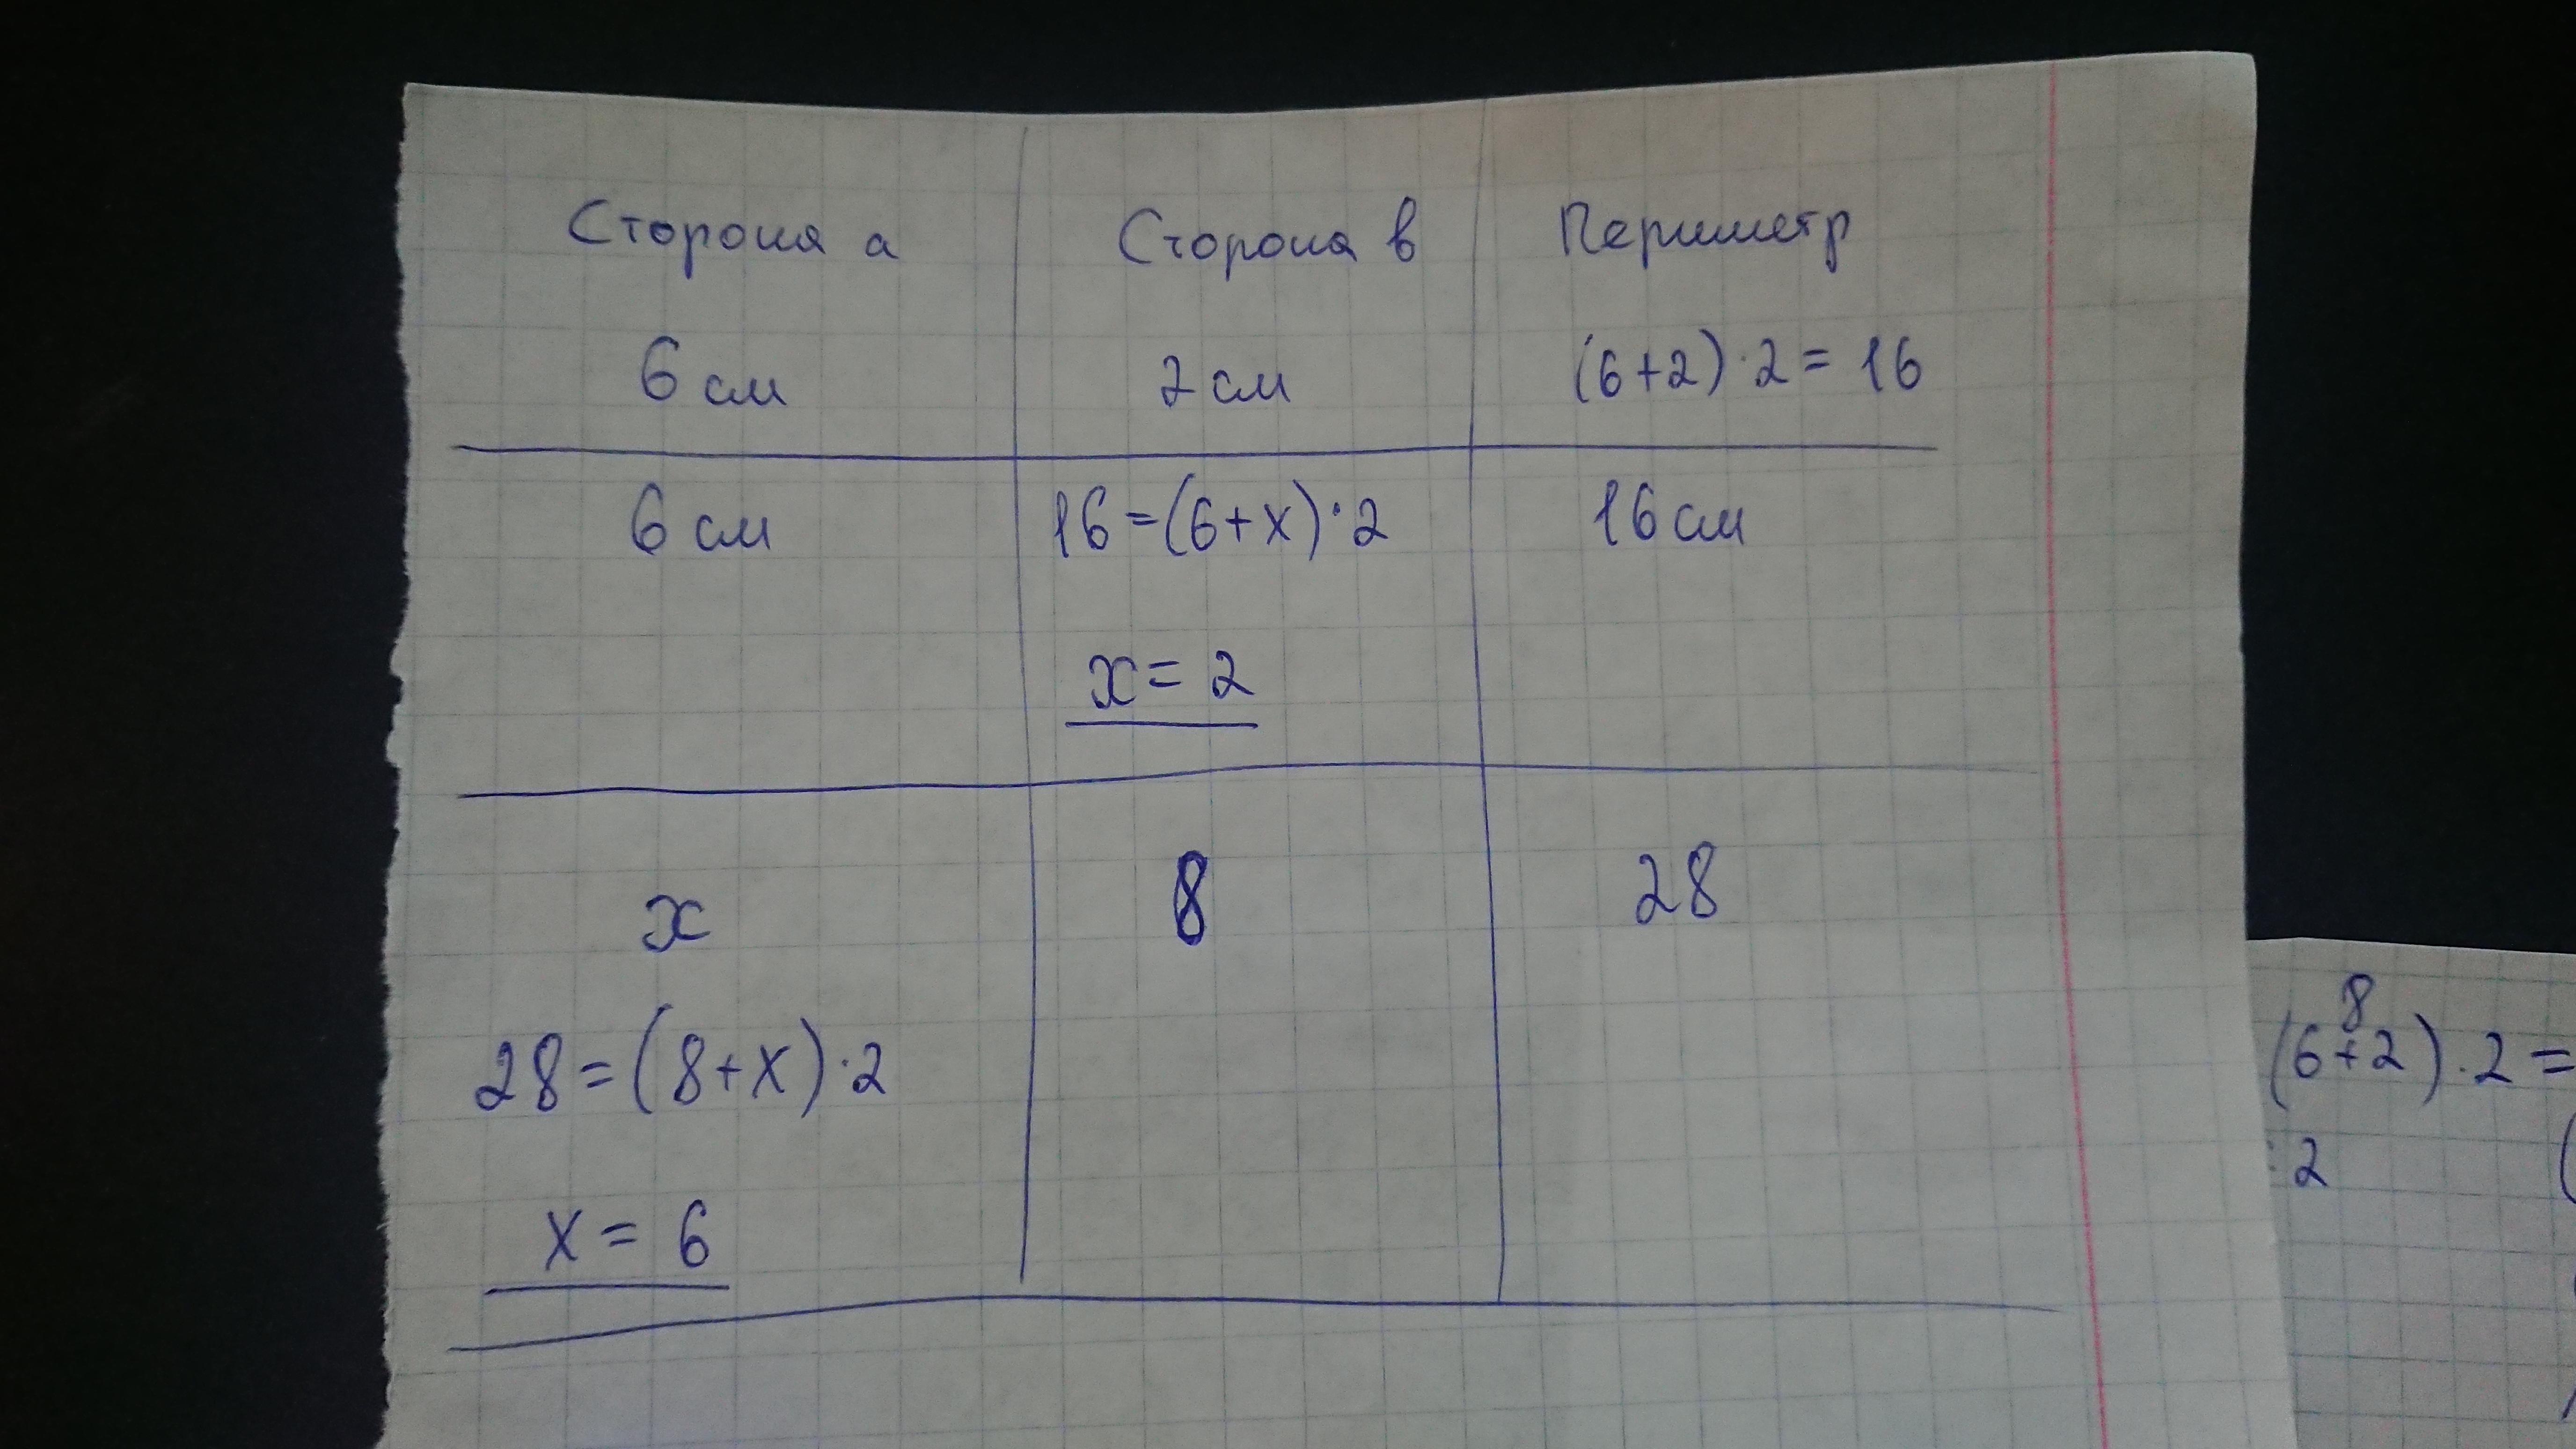 Сторона а Сторона в Периметр
6 см 2 см (6+2)·2= 16
6 см 16=(6+x)·2 16 см
x= 2
x 8 28
28=(8+x)·2
x= 6
8
(6+2)·2=
: 2 (